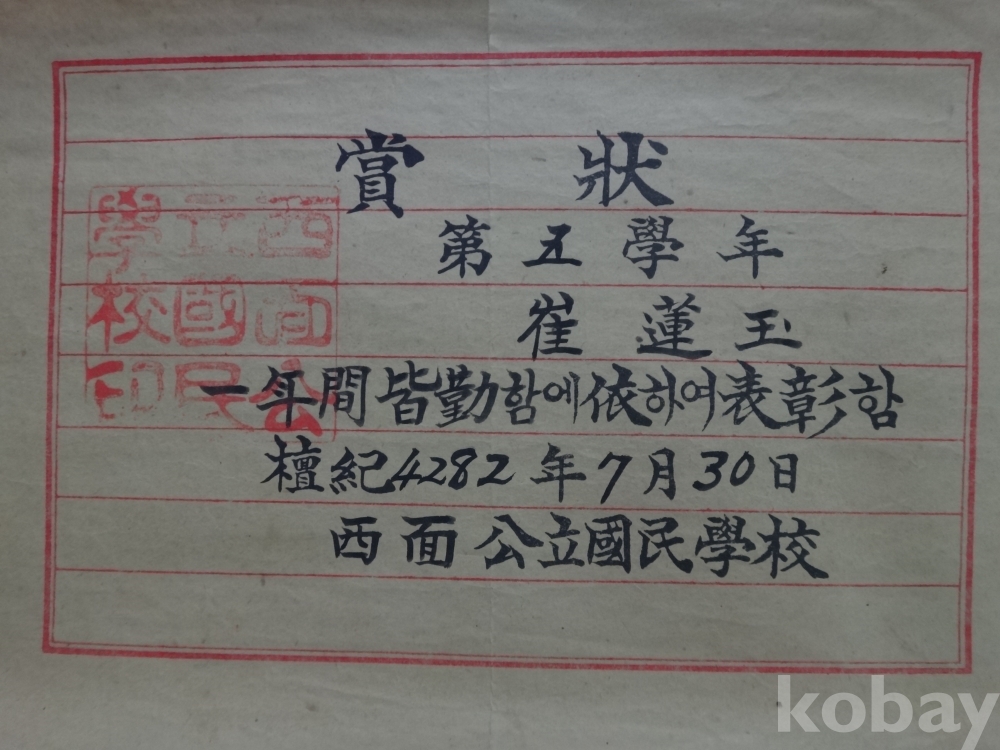 賞 狀
第五學年
崔蓮玉
一年間皆勤함에依하여表彰함
檀紀4282年7月30日
西面公立國民學校
西面公
立國民
學校印
kobay